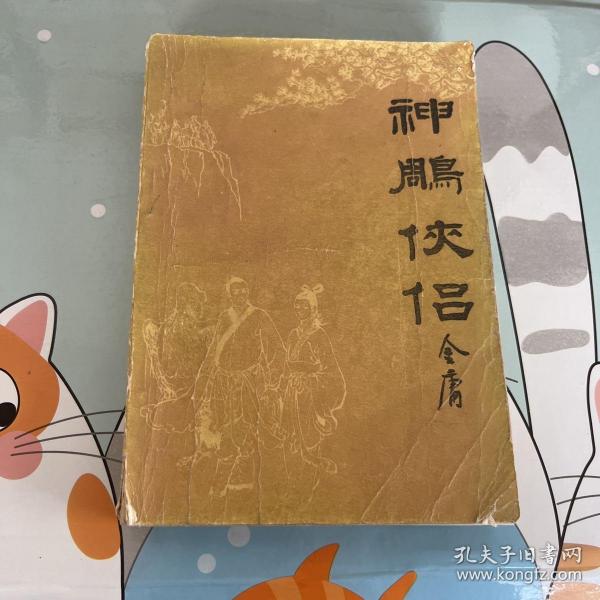 神鵰俠侶
金庸
孔夫子旧书网
www.kongfz.com